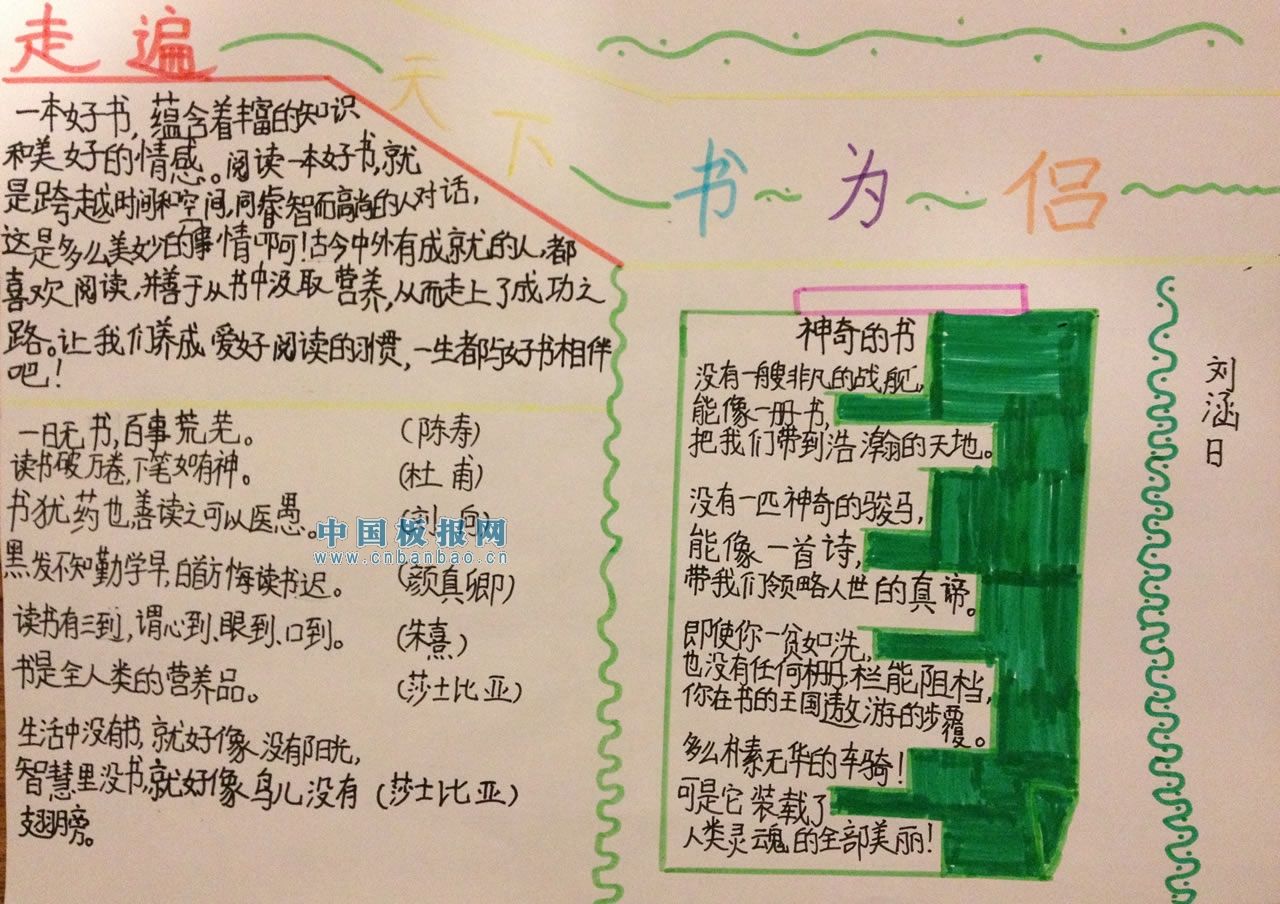 走遍
天下
书为侣
一本好书,蕴含着丰富的知识
和美好的情感。阅读一本好书,就
是跨越时间和空间,同睿智而高尚的人对话,
这是多么美妙的事情啊!古今中外有成就的人,都
喜欢阅读,并善于从书中汲取营养,从而走上了成功之
路。让我们养成爱好阅读的习惯,一生都与好书相伴
吧!
一日无书,百事荒芜。(陈寿)
读书破万卷,下笔如有神。(杜甫)
书犹药也,善读之可以医愚。(刘向)
黑发不知勤学早,白首方悔读书迟。(颜真卿)
读书有三到,谓心到、眼到、口到。(朱熹)
书是全人类的营养品。(莎士比亚)
生活中没有书,就好像没有阳光,
智慧里没书,就好像鸟儿没有(莎士比亚)
翅膀。
中国板报网
www.cnbanbao.cn
神奇的书
没有一艘非凡的战舰,
能像一册书,
把我们带到浩瀚的天地。
没有一匹神奇的骏马,
能像一首诗,
带我们领略人世的真谛。
即使你一贫如洗,
也没有任何栅栏能阻挡,
你在书的王国遨游的步覆。
多么朴素无华的车骑!
可是它装载了
人类灵魂的全部美丽!
刘涵日